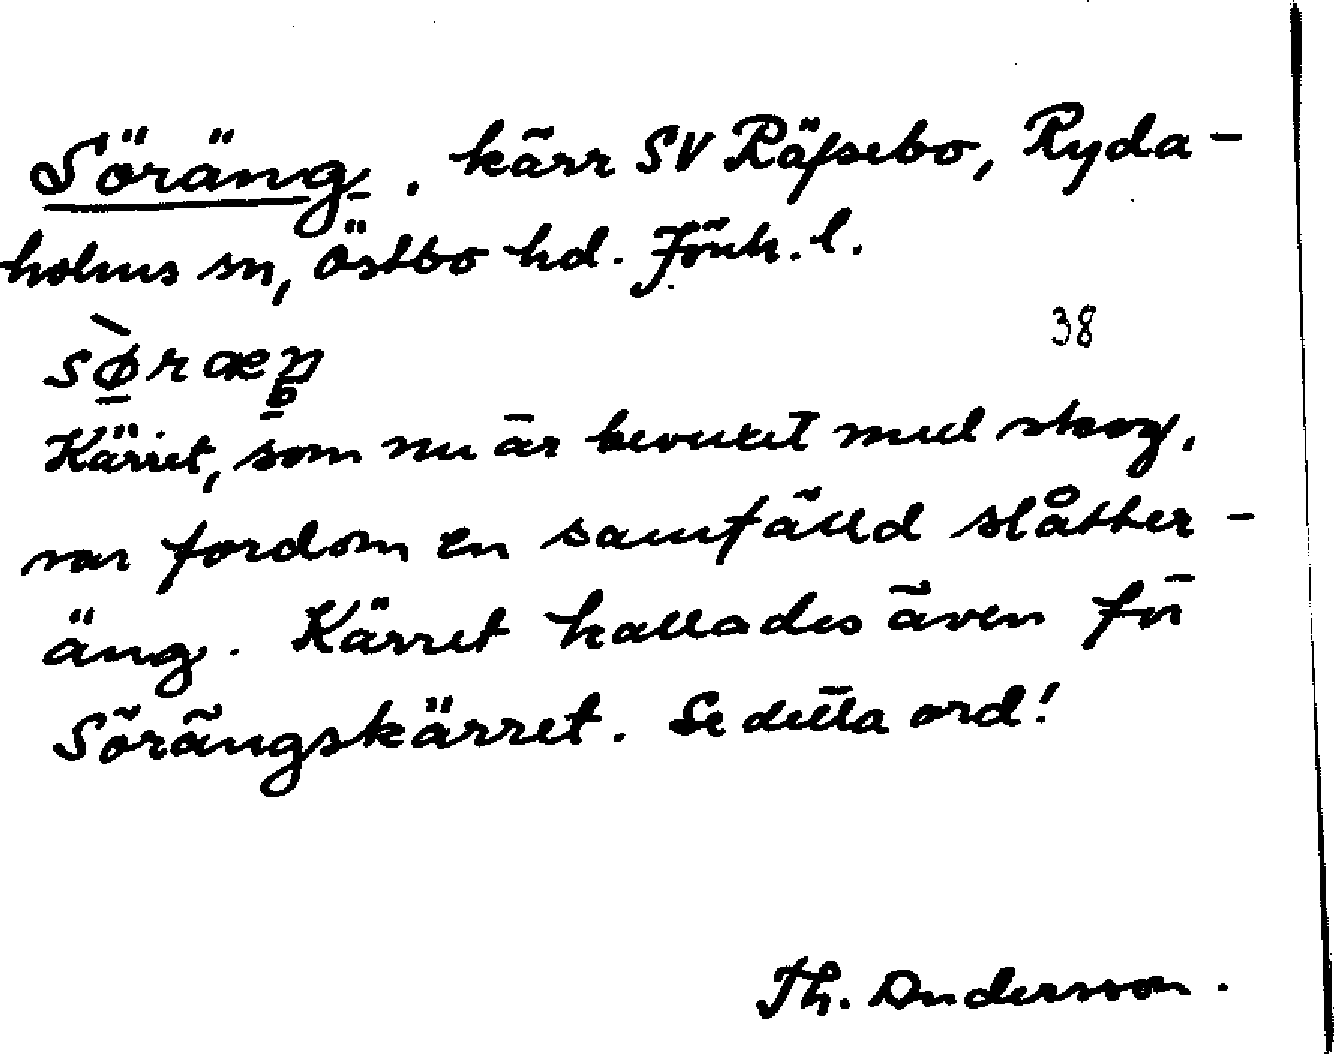 Söräng, kärr SV Räfsebo, Ryda-
holms sn, Östbo hd. Jönk. l.
38
Kärret, som nu är bevuxet med skog,
var fordom en samfälld slåtter-
äng. Kärret kallades även för
Sörängskärret. Se detta ord!
Th. Andersson.